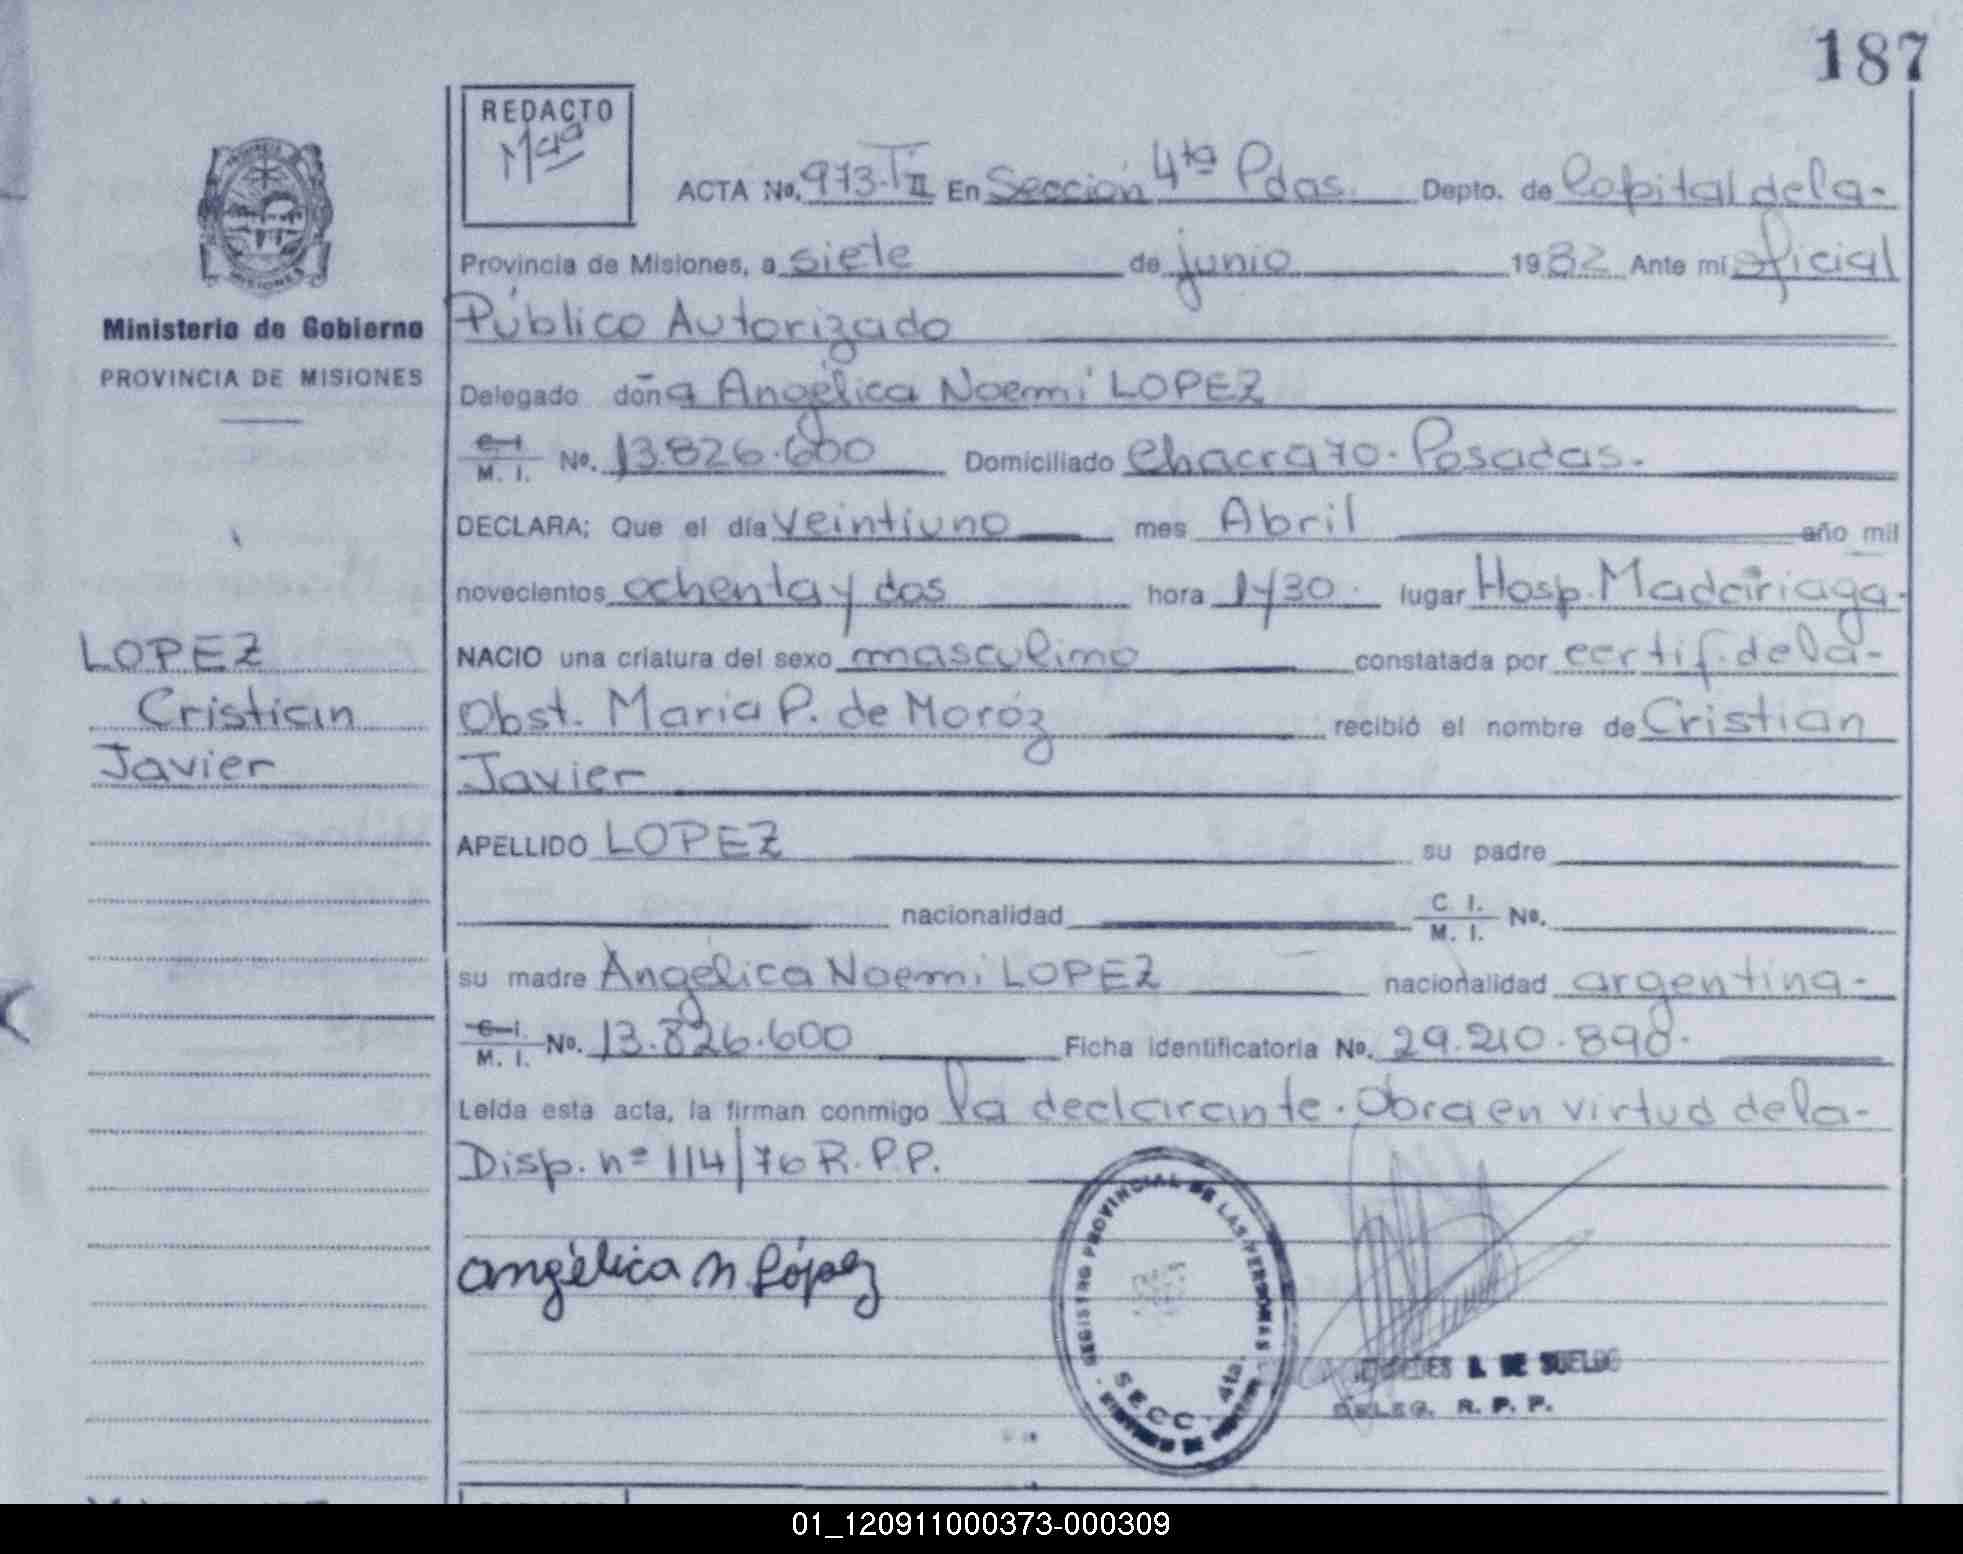 187
REDACTO
Mqq
ACTA No. 973-T II En Sección 4ta Pdas. Depto. de Capital de la-
Provincia de Misiones, a siete de junio 1982 Ante mí oficial
Público Autorizado
Ministerio de Gobierno
PROVINCIA DE MISIONES
Delegado doña Angélica Noemí LOPEZ
C. I. M. I. No. 13.826.600 Domiciliado Chacra 70. Posadas.
DECLARA; Que el día veintiuno mes Abril año mil
novecientos ochenta y dos hora 1y30. lugar Hosp. Madariaga.
NACIO una criatura del sexo masculino constatada por certif. de la-
Obst. Maria P. de Moróz recibió el nombre de Cristian
Javier
LOPEZ
Cristian
Javier
APELLIDO LOPEZ su padre
nacionalidad C. I. M. I. No.
su madre Angélica Noemí LOPEZ nacionalidad argentina-
C. I. M. I. No. 13.826.600 Ficha identificatoria No. 29.210.898.
Leída esta acta, la firman conmigo la declarante. Obra en virtud de la-
Disp. nº 114/76 R.P.P.
Angélica N López
REGISTRO PROVINCIAL DE LAS PERSONAS
SECC. 4ta.
DE SUELDO
DELEG. R. P. P.
01_120911000373-000309